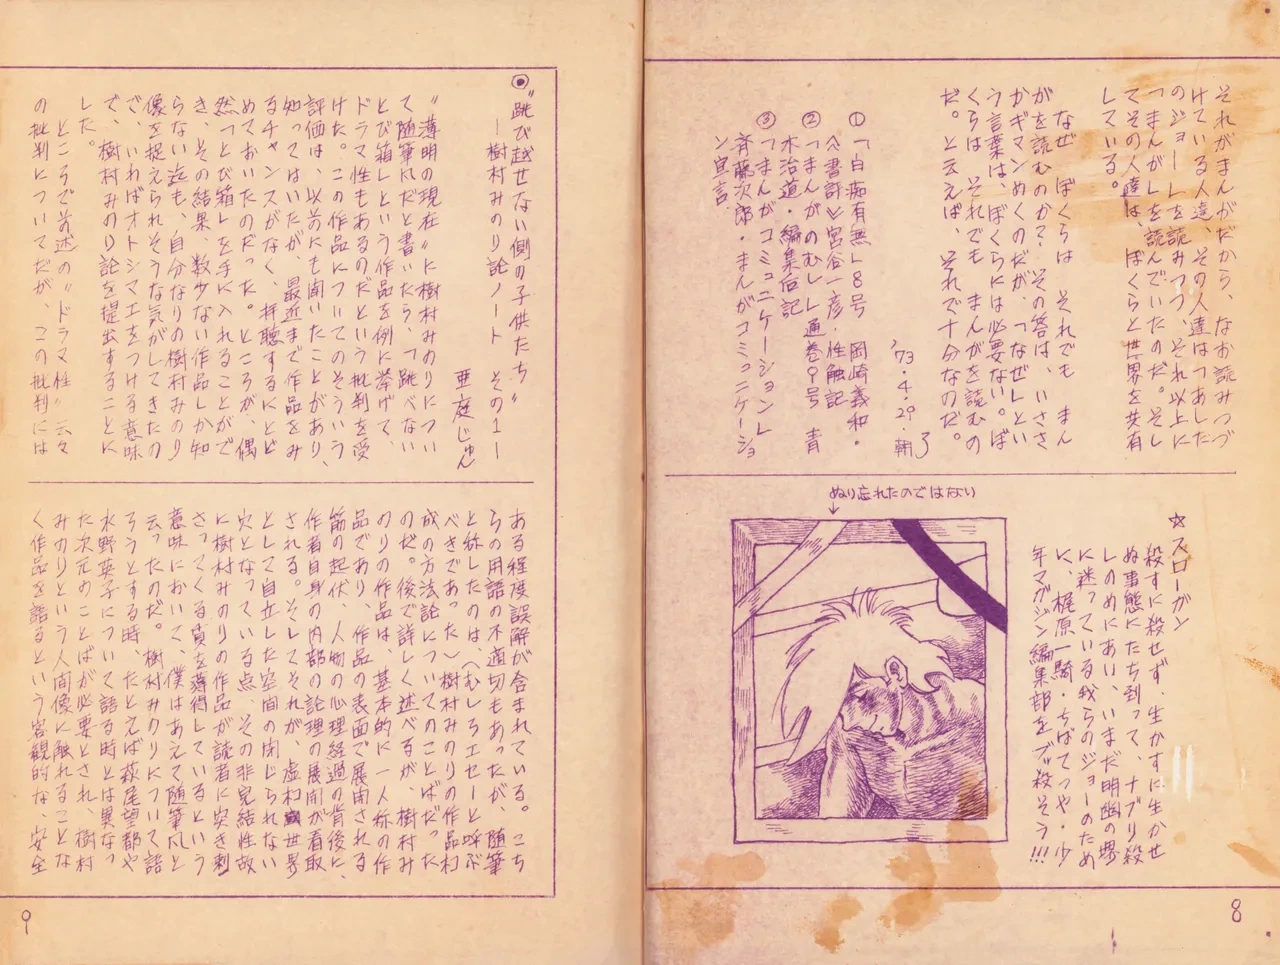 それがまんがだから、なお読みつづ
けている人達、その人達は「あした
のジョー」を読みつつ、それ以上に
「まんが」を読んでいたのだ。そし
てその人達は、ぼくらと世界を共有
している。
なぜ ぼくらは それでも まん
がを読むのか？ その答は、いささ
かギマンめくのだが、「なぜ」とい
う言葉は、ぼくらには必要ない。ぼ
くらは それでも まんがを読むの
だ。と云えば、それで十分なのだ。
了
'73・4・29・朝
① 「白痴有無」8号 岡崎義和・
《書評》宮谷一彦・性触記
② 「まんがのむし」通巻9号 青
木治道・編集后記
③ 「まんがコミュニケーション」
斉藤次郎・まんがコミュニケーショ
ン宣言
☆スローガン
殺すに殺せず、生かすに生かせ
ぬ事態にたち到って、ナブリ殺
しのめにあい、いまだ明幽の堺
に迷っている我らのジョーのため
に、梶原一騎・ちばてつや・少
年マガジン編集部をブッ殺そう!!!
ぬり忘れたのではない
8
◉〝跳び越せない側の子供たち〟
―樹村みのり論ノート その1―
亜庭じゅん
〝薄明の現在〟に樹村みのりについ
て随筆風だと書いたら、「跳べない
とび箱」という作品を例に挙げて、
ドラマ性もあるのだという批判を受
けた。この作品についてのそういう
評価は、以前にも聞いたことがあり、
知ってはいたが、最近まで作品をみ
るチャンスがなく、拝聴するにとど
めておいたのだった。ところが、偶
然「とび箱」を手に入れることがで
き、その結果、数少ない作品しか知
らない迄も、自分なりの樹村みのり
像を捉えられそうな気がしてきたの
で、いわばオトシマエをつける意味
で、樹村みのり論を提出することに
した。
ところで前述の〝ドラマ性〟云々
の批判についてだが、この批判には
ある程度誤解が含まれている。こち
らの用語の不適切もあったが、随筆
と称したのは、(むしろエセーと呼ぶ
べきであった)樹村みのりの作品構
成の方法論についてのことばだった
のだ。後で詳しく述べるが、樹村み
のりの作品は、基本的に一人称の作
品であり、作品の表面で展開される
筋の起伏、人物の心理経過の背後に、
作者自身の内部の論理の展開が看取
される。そしてそれが、虚構世界
として自立した空間の閉じられない
穴となっている点、その非完結性故
に樹村みのりの作品が読者に突き刺
さってくる質を獲得しているという
意味において、僕はあえて「随筆風」と
云ったのだ。樹村みのりについて語
ろうとする時、たとえば萩尾望都や
水野英子について語る時とは異なっ
た次元のことばが必要とされ、樹村
みのりという人間像に触れることな
く作品を語るという客観的な、安全
9